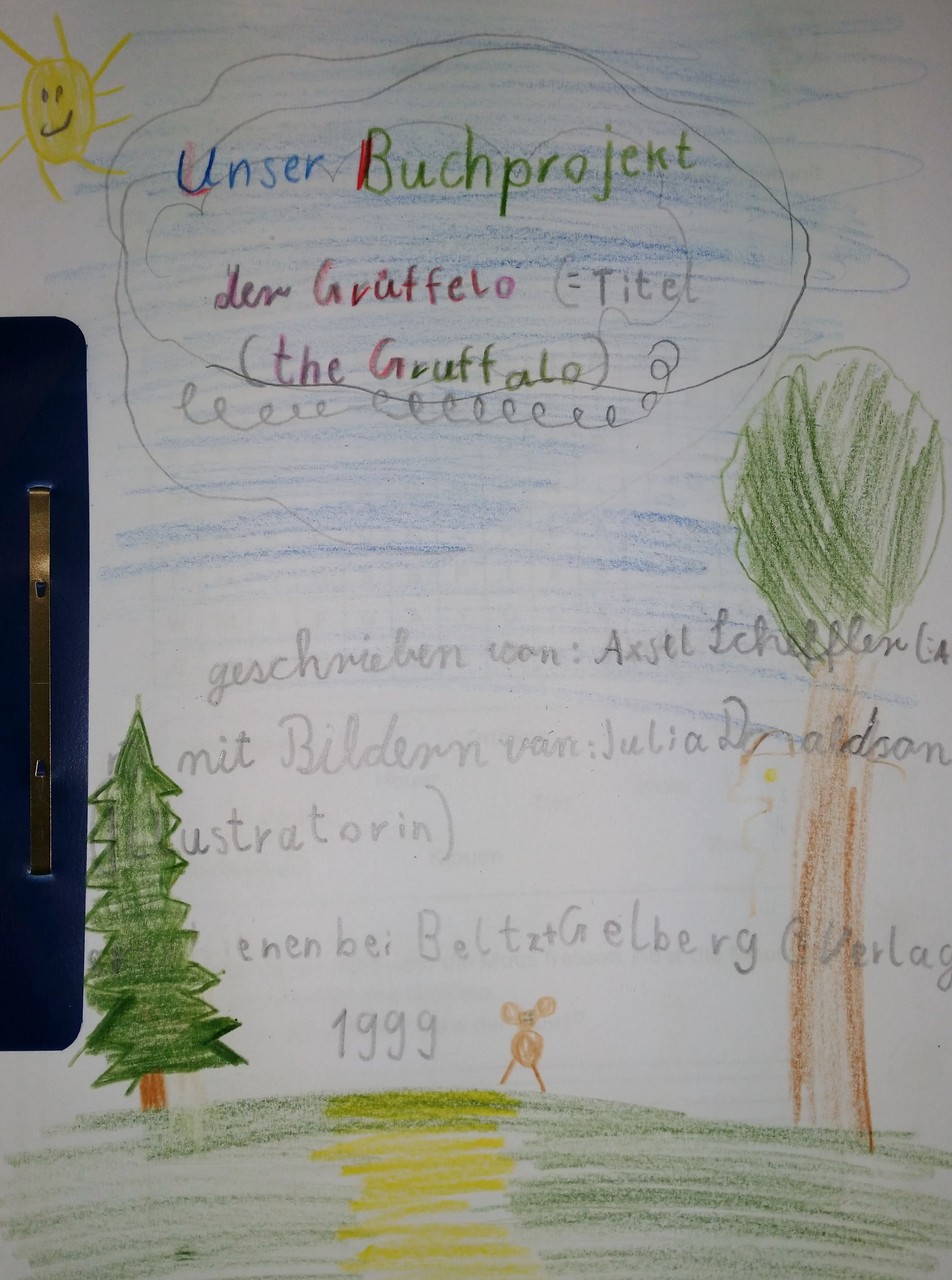 Unser Buchprojekt
der Grüffelo (=Titel
(the Gruffalo)
geschrieben von: Axsel Scheffler (=A
mit Bildern von: Julia Donaldson
ustratorin)
enen bei Beltz+Gelberg (Verlag
1999